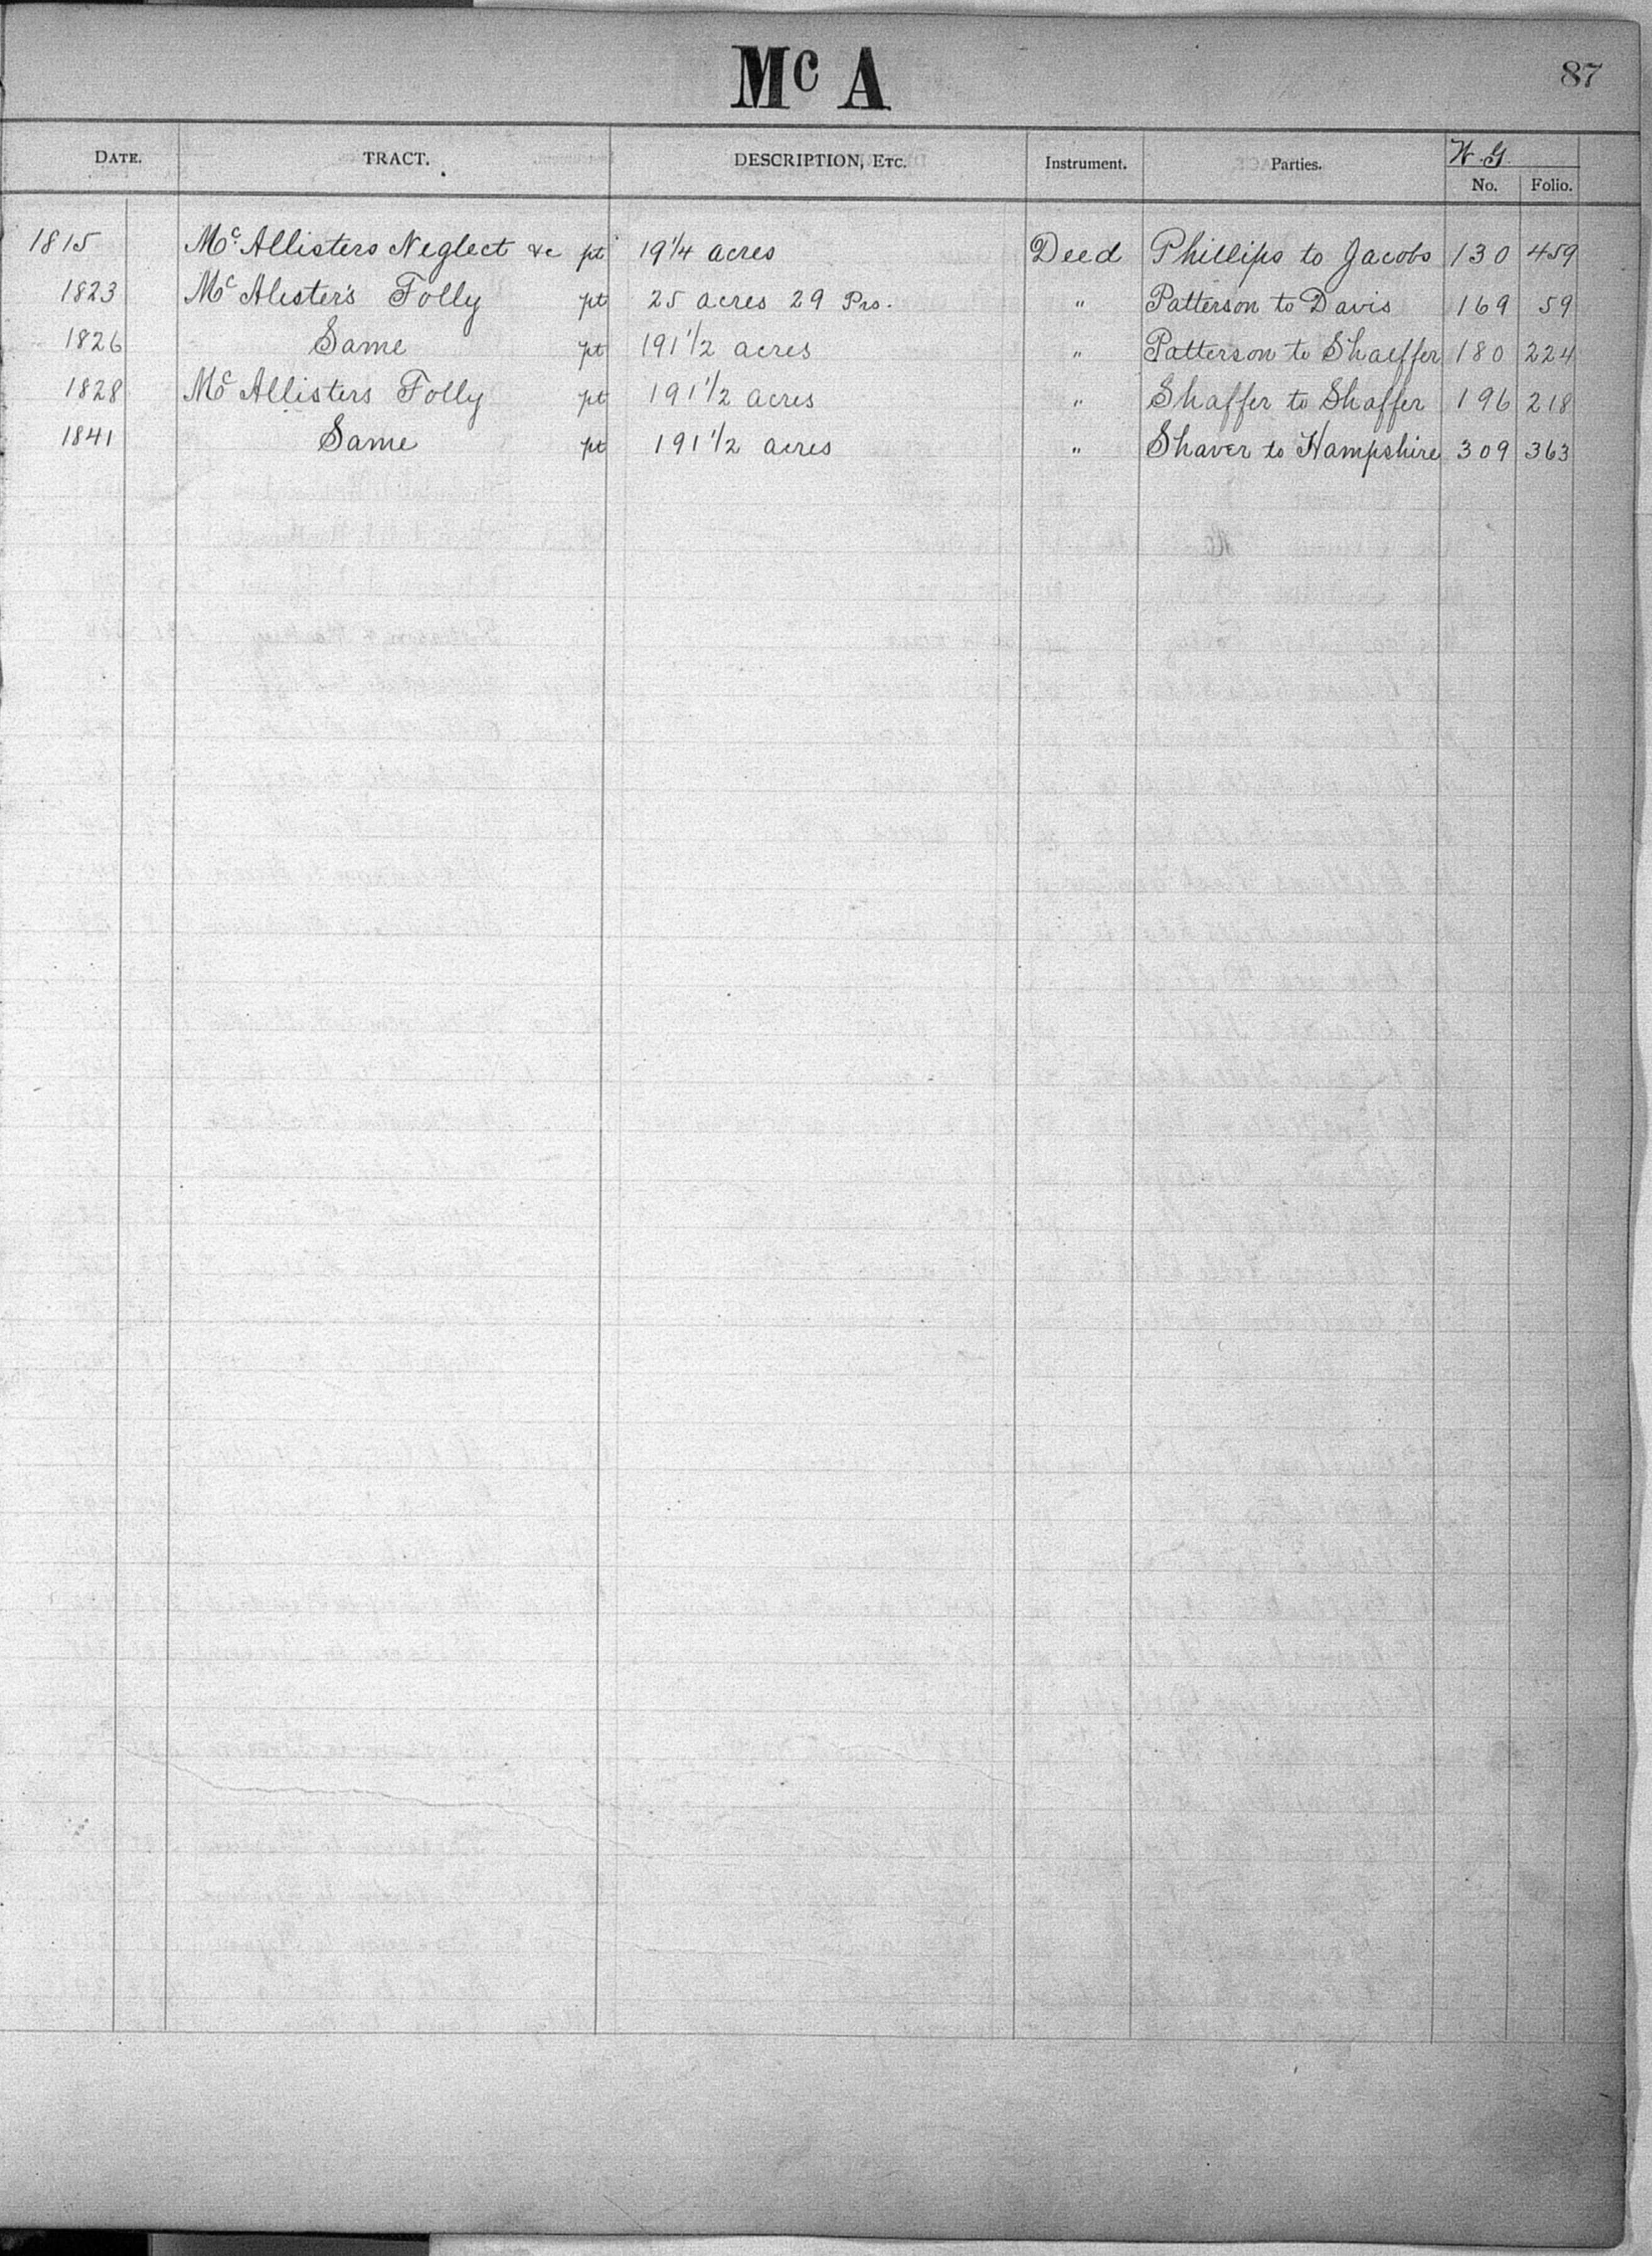 Mc A
87
DATE. TRACT. DESCRIPTION, ETC. Instrument. Parties. W.G. No. Folio.
1815 McAllisters Neglect &c pt 19 1/4 acres Deed Phillips to Jacobs 130 459
1823 McAlester's Folly pt 25 acres 29 Prs. " Patterson to Davis 169 59
1826 Same pt 191 1/2 acres " Patterson to Shaeffer 180 224
1828 McAllisters Folly pt 191 1/2 acres " Shaffer to Shaffer 196 218
1841 Same pt 191 1/2 acres " Shaver to Hampshire 309 363